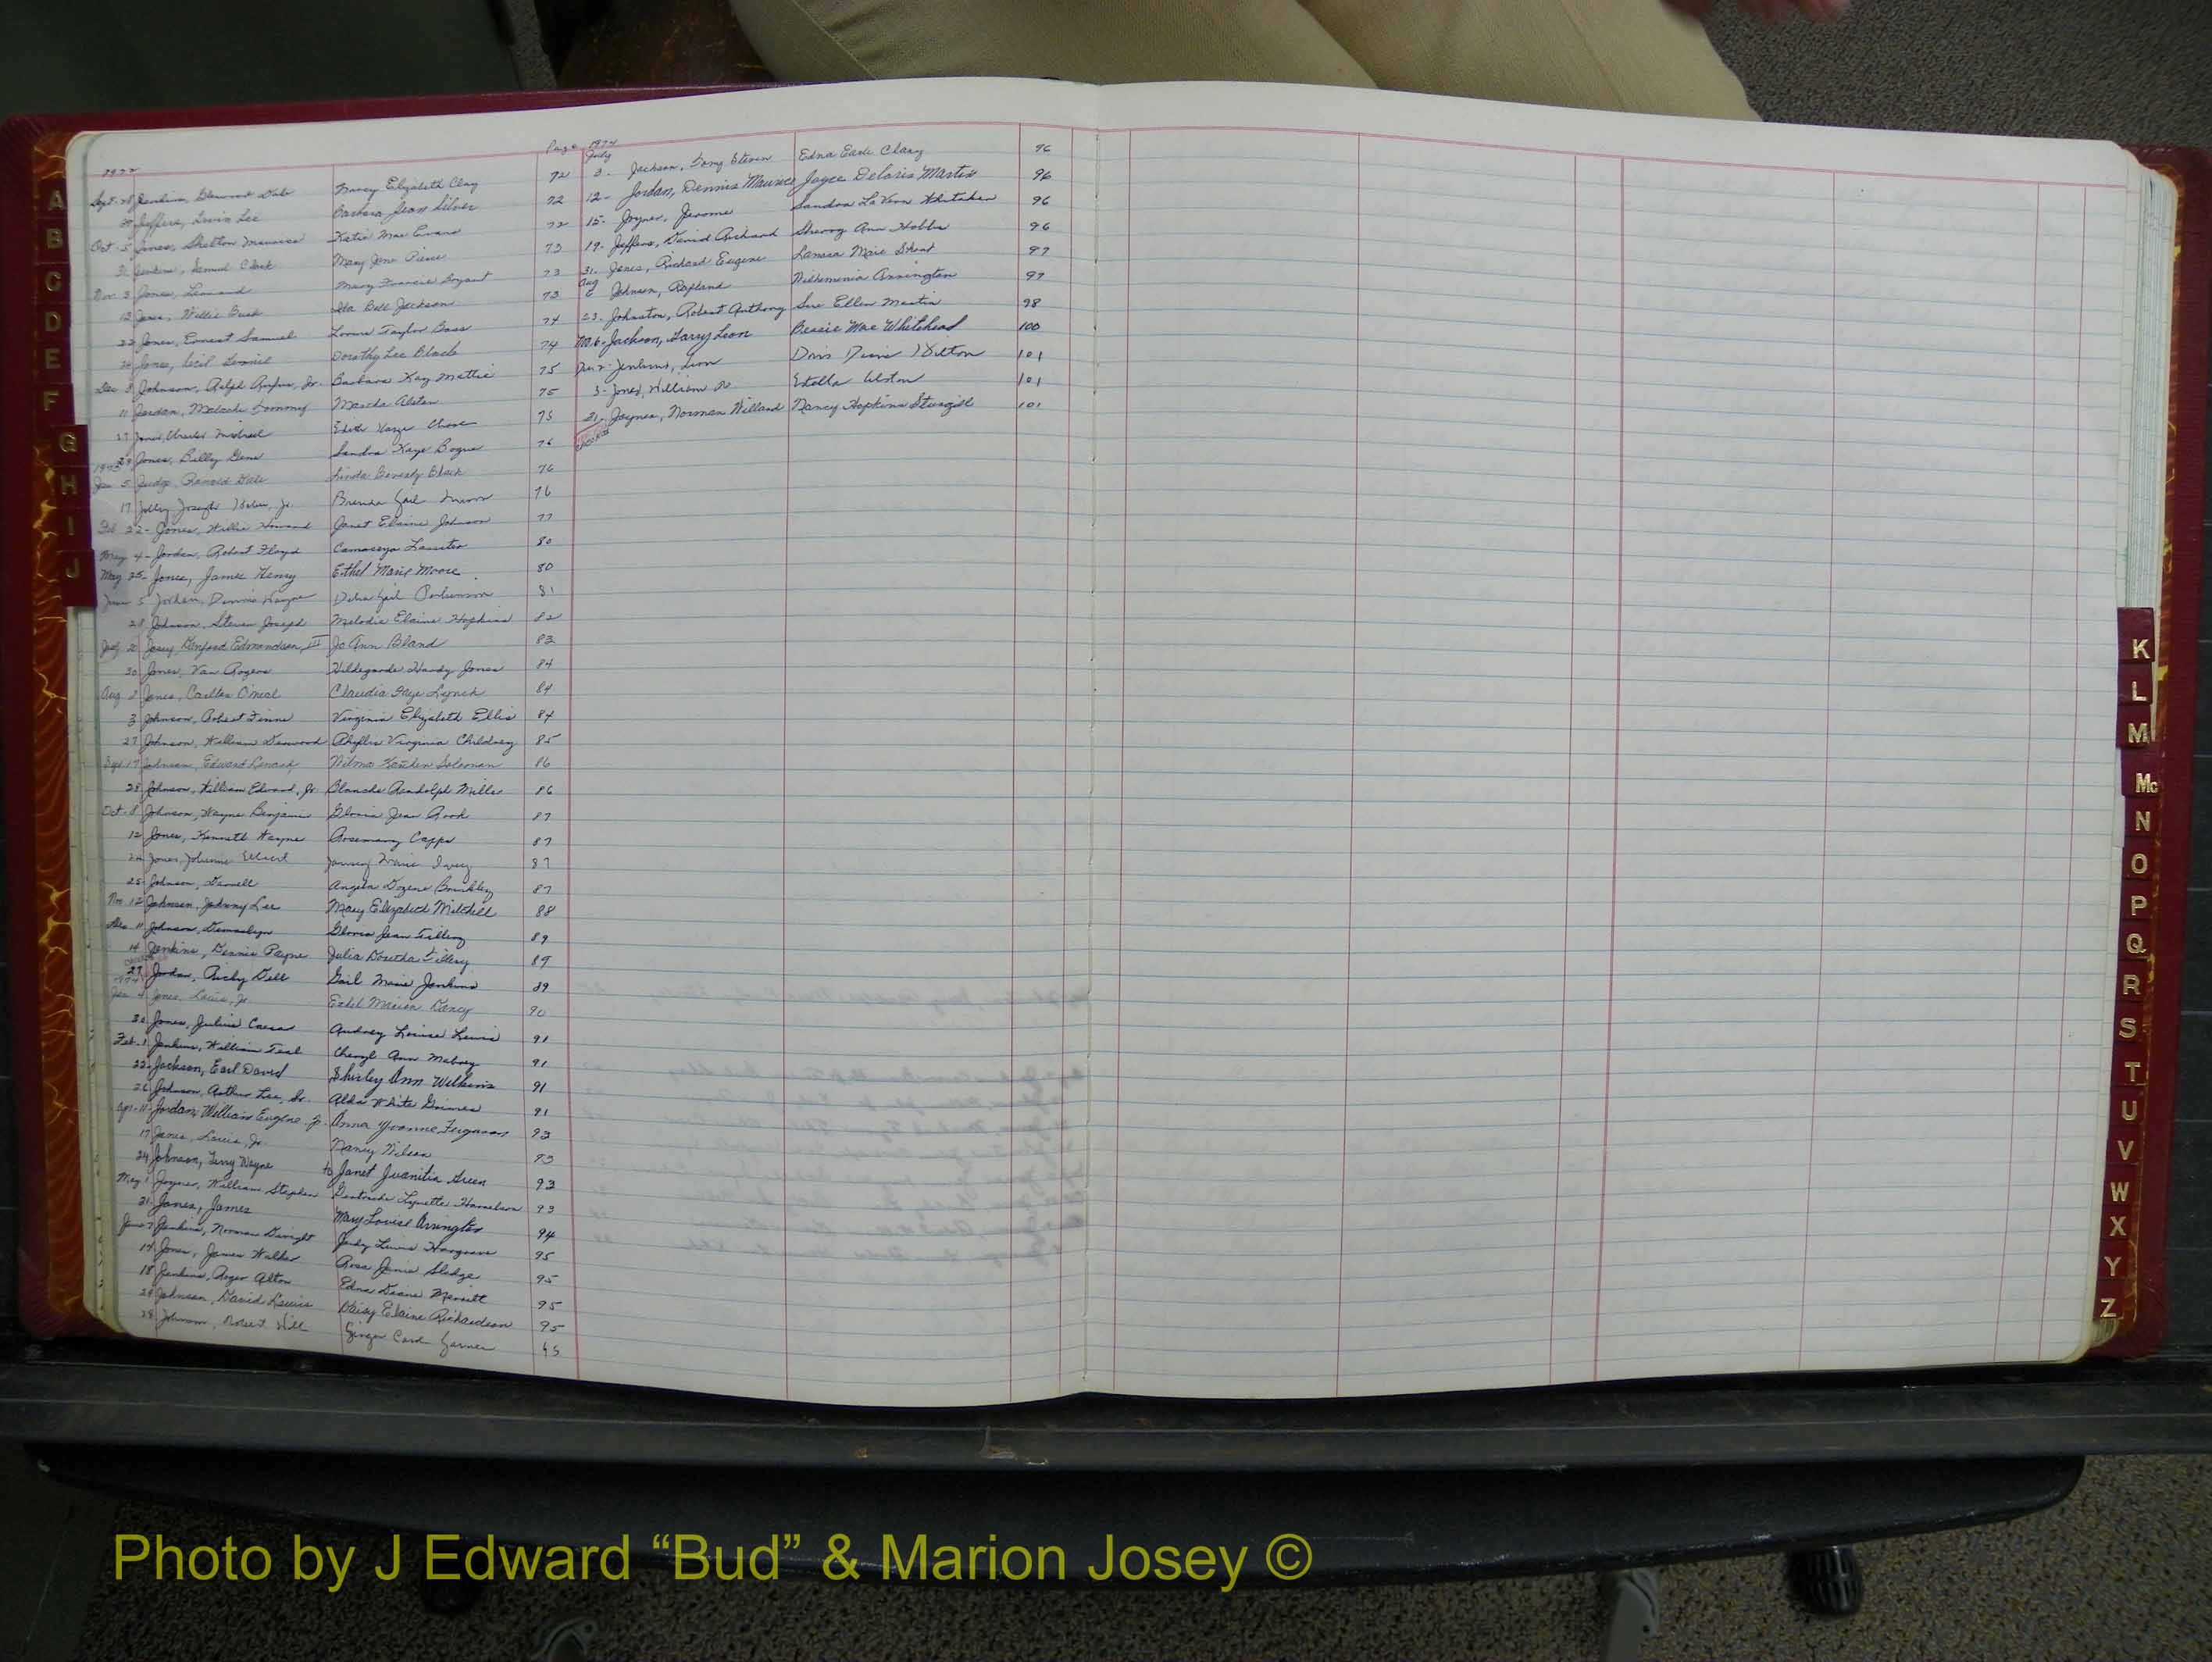 1972
Sept. 28 Jenkins, Elwood Dale Nancy Elizabeth Clay 72
Jeffers, Irvin Lee Barbara Jean Silver 72
Oct. 5 Jones, Shelton Maurice Katie Mae Evans 72
Jenkins, Samuel Mary Jane Pierce 73
Nov. 3 Jones, Leonard Mary Francis Bryant 73
12 Jones, Willie Ida Bell Jackson 73
22 Jones, Ernest Samuel Taylor Bass 74
Jones, Cecil Dorothy Lee Black 74
Dec 8 Johnson, Ralph Rufus, Jr. Barbara Kay 75
11 Jordan, Malachi Martha Alston 75
27 Jones, Charles Michael Edith 75
29 Jones, Billy Gene Sandra Kaye Bogue 76
1973
Jan 5 Judge, Ronald Dale Linda Beverly Black 76
17 Jolly, Joseph Jr. Brenda Gail 76
Feb 22- Jones, Willie Howard Janet Elaine Johnson 77
May 4- Jordan, Robert Floyd Lassiter 80
May 25- Jones, James Henry Ethel Marie Moore 80
June 5 Jordan, Dennis Wayne Debra Gail 81
28 Johnson, Steven Joseph Melodie Elaine Hopkins 82
July 2 Josey, Edmondson, III Jo Ann Bland 83
30 Jones, Van Rogers Hildegarde Hardy Jones 84
Aug. 2 Jones, Carlton O'neal Claudia Faye Lynch 84
3 Johnson, Robert Virginia Elizabeth Ellis 84
27 Johnson, William Phyllis Virginia Childrey 85
Sept. 17 Johnson, Edward Wilma Solomon 86
28 Johnson, William Edward, Jr. Blanche Randolph Mills 86
Oct. 8 Johnson, Wayne Benjamin Gloria Jean Rook 87
12 Jones, Kenneth Wayne Rosemary Capps 87
Jones, Johnnie Marie Ivey 87
25 Johnson, Darnell Angela Brinkley 87
Nov. 12 Johnson, Johnny Lee Mary Elizabeth Mitchell 88
Dec. 11 Johnson, Gloria Jean Tillery 89
14 Jenkins, Dennis Payne Julia Tillery 89
27 Jordan, Ricky Dell Gail Marie Jenkins 89
1974
Jan. 4 Jones, Louis, Jr. Ethel Marion Dancy 90
Jones, Julius Caesar Audrey Louise Lewis 91
Feb. 1 Jenkins, William Cheryl Ann 91
22 Jackson, Earl David Shirley Ann Wilkins 91
Johnson, Arthur Lee, Sr. Alda White Grimes 91
Apr. 11 Jordan, William Eugene, Jr. Anna Yvonne Ferguson 93
17 Jones, Louis, Jr. Nancy Wilson 93
24 Johnson, Terry Wayne to Janet Juanitia Green 93
May 1 Joyner, William Stephen Lynette 93
31 Jones, James Mary Louise Arrington 94
June 7 Jenkins, Norman Dwight Judy Lewis Hargrove 95
14 Jones, James Walker Rosa Sledge 95
18 Jenkins, Roger Alton Edna Diane Merritt 95
24 Johnson, David Lewis Daisy Elaine Richardson 95
28 Johnson, Robert Will Ginger Carol Garner 95
Page 1974
July
3- Jackson, Tony Steven Edna Earle Clary 96
12- Jordan, Dennis Maurice Joyce Deloris Martin 96
15- Joyner, Jerome Sandra LaVern Whitaker 96
19- Jeffers, David Richard Sherry Ann Hobbs 96
31- Jones, Richard Eugene Marie Short 97
Aug
6 Johnson, Arrington 97
23- Johnston, Robert Anthony Sue Ellen Martin 98
No. 6- Jackson, Larry Leon Bessie Mae Whitehead 100
Dec 2- Jenkins, Leon Doris 101
3- Jones, William Estella Alston 101
21- Jaynes, Norman Willard Nancy Hopkins Sturgill 101
A
B
C
D
E
F
G
H
I
J
K
L
M
Mc
N
O
P
Q
R
S
T
U
V
W
X
Y
Z
Photo by J Edward “Bud” & Marion Josey ©